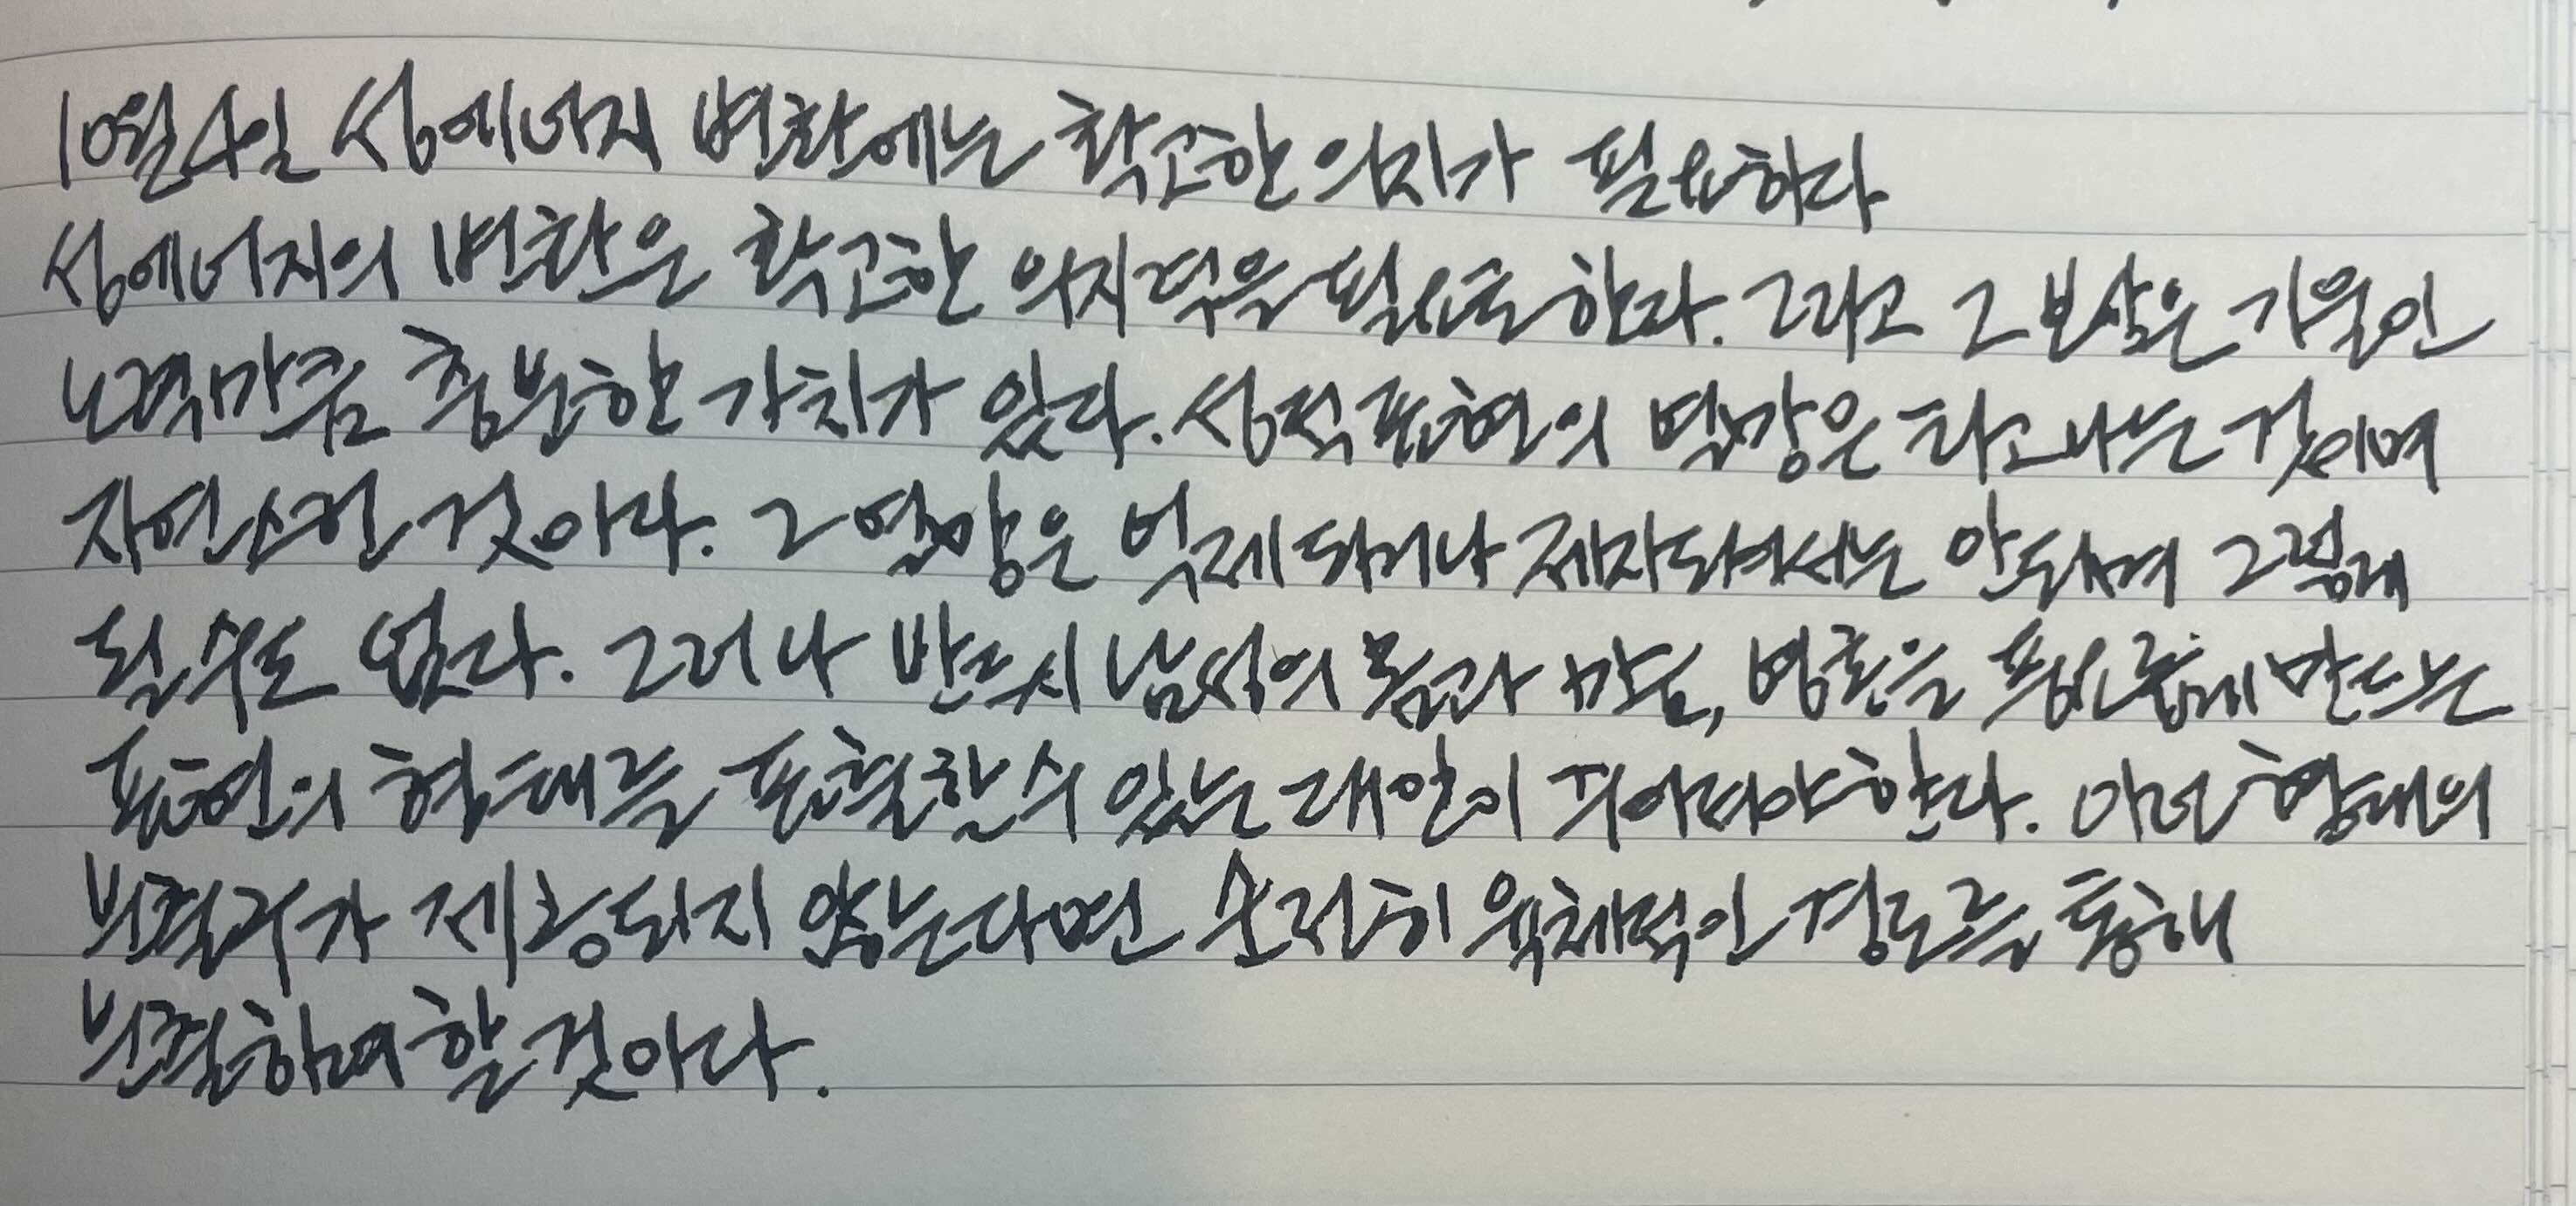 10월4일 성에너지 변환에는 확고한 의지가 필요하다
성에너지의 변환은 확고한 의지력을 필요로 한다. 그리고 그 보상은 기울인
노력만큼 충분한 가치가 있다. 성적표현의 열망은 타고나는 것이며
자연스런 것이다. 그 열망은 억제되거나 제지되어서는 안되며 그렇게
될 수도 없다. 그러나 반드시 남성의 몸과 마음, 영혼을 풍요롭게 만드는
표현의 형태를 표출할 수 있는 대안이 주어져야 한다. 이런 형태의
분출구가 제공되지 않는다면 순전히 육체적인 경로를 통해
분출하려 할 것이다.